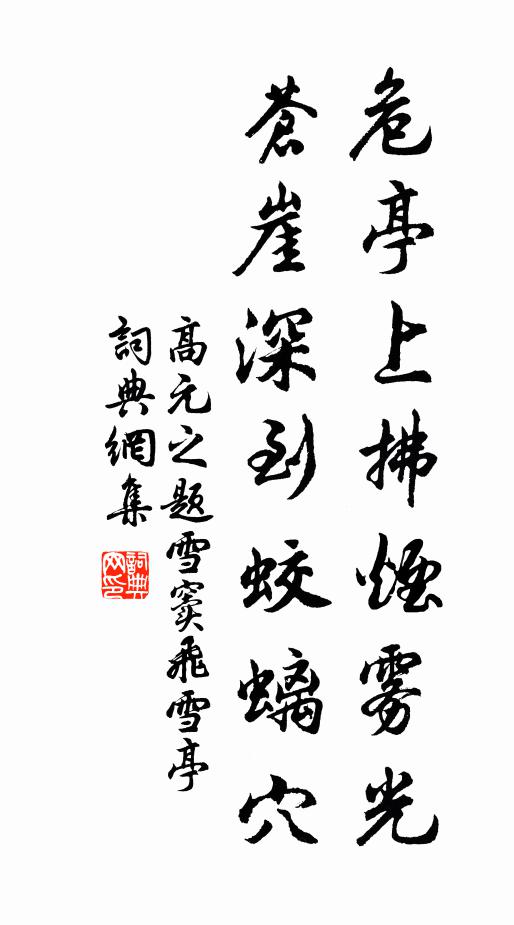 危亭上拂煙雾光
蒼崖深到蛟螭穴
高元之题雪窦飛雪亭
詞典網集
詞典
网印